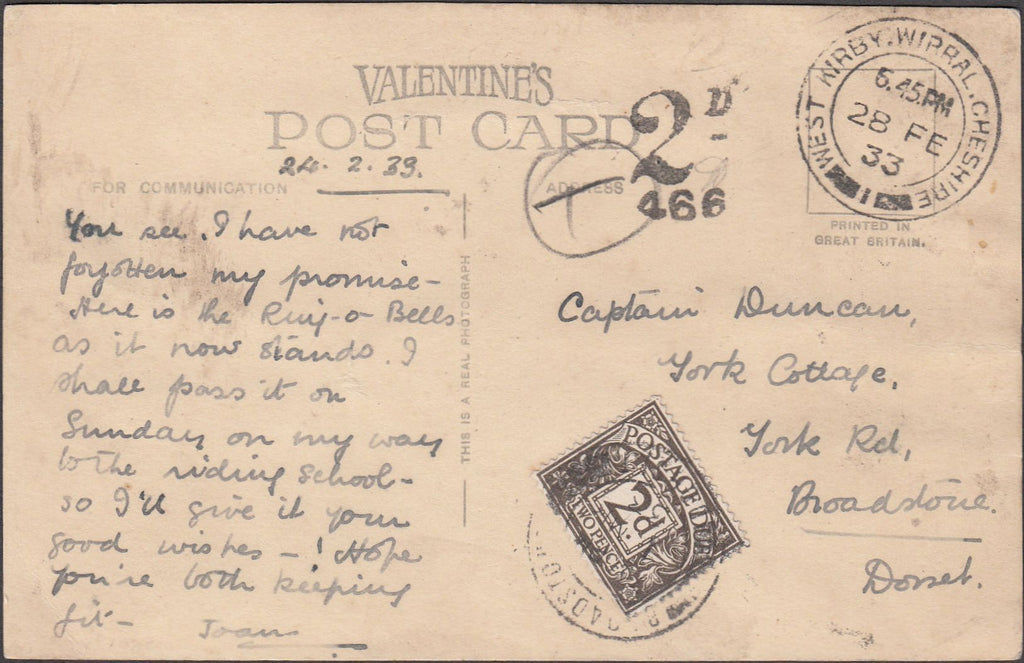 VALENTINE'S
POST CARD
24. 2. 33.
FOR COMMUNICATION
ADDRESS
You see. I have not
forgotten my promise –
Here is the Ring-o-Bells
as it now stands. I
shall pass it on
Sunday on my way
to the riding school –
so I'll give it your
good wishes – ! Hope
you're both keeping
fit – Joan
THIS IS A REAL PHOTOGRAPH
2D
466
T
WEST KIRBY. WIRRAL. CHESHIRE
6.45.PM
28 FE
33
1
PRINTED IN
GREAT BRITAIN.
Captain Duncan,
York Cottage,
York Rd,
Broadstone.
Dorset.
POSTAGE DUE
2d.
TWO PENCE